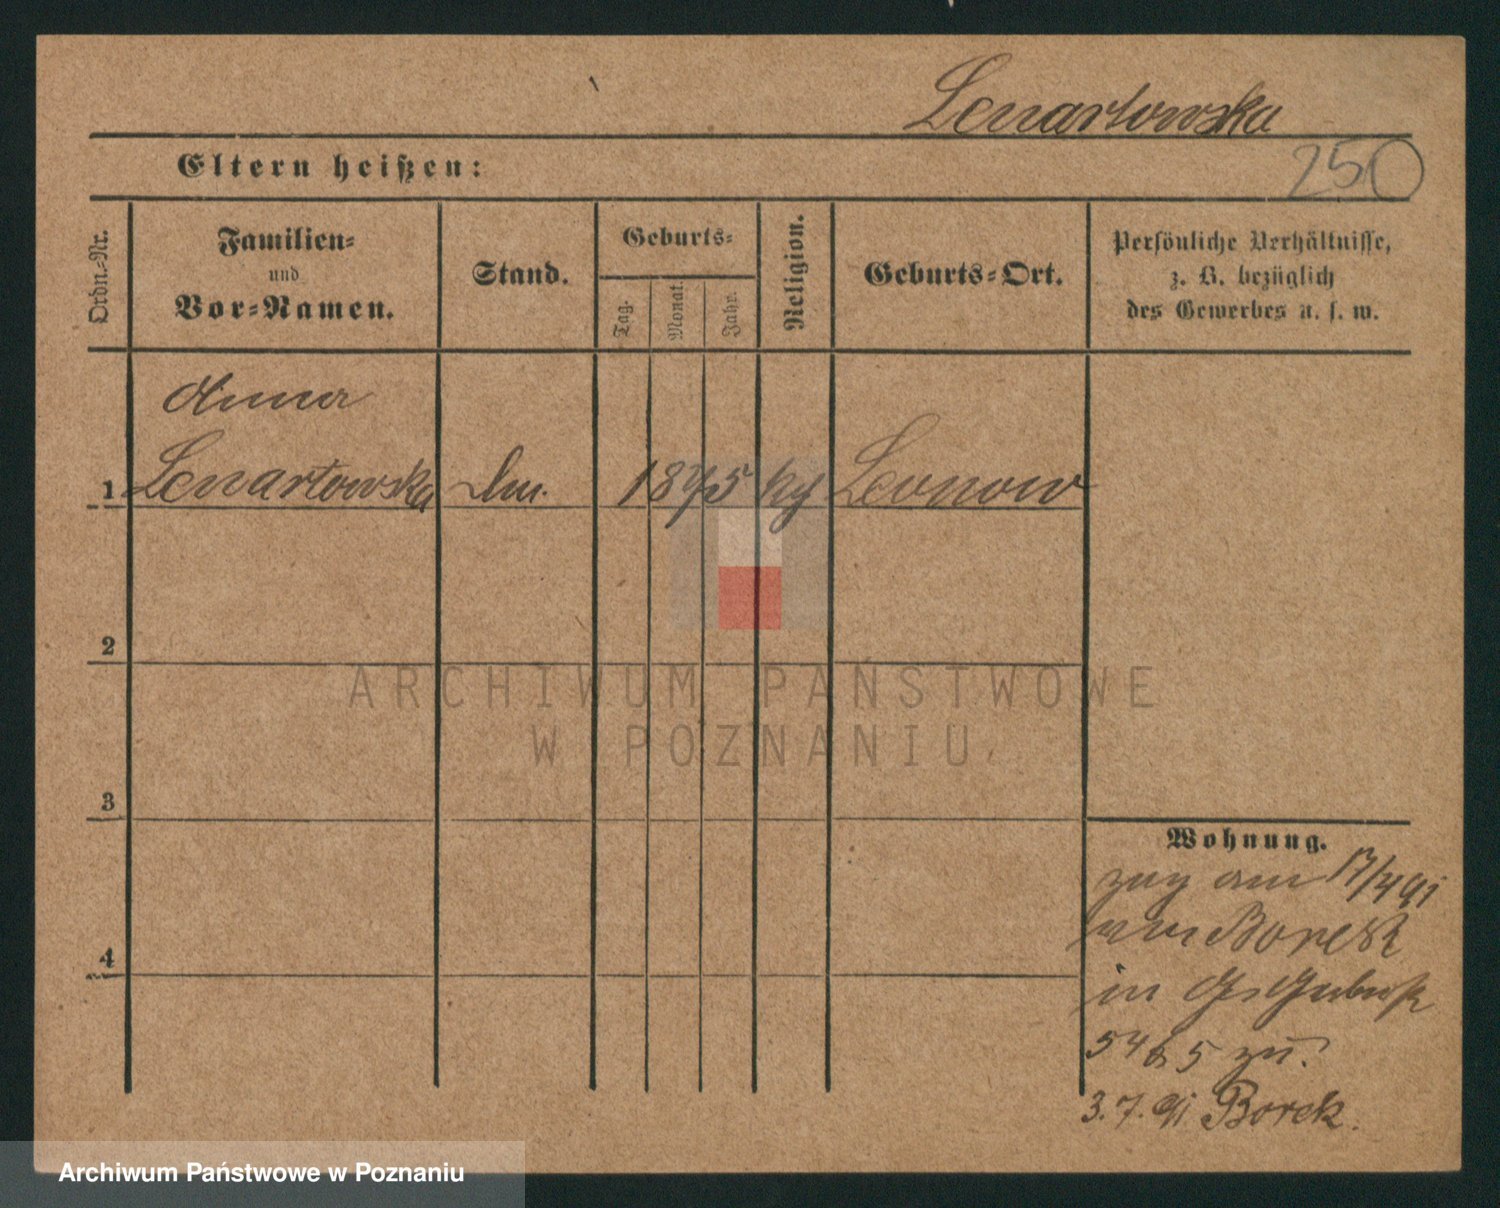 Lenartowska
250
Eltern heißen:
Ordn.-Nr.
Familien-
und
Vor-Namen.
Stand.
Geburts-
Tag.
Monat.
Jahr.
Religion.
Geburts-Ort.
Persönliche Verhältnisse,
z. B. bezüglich
des Gewerbes u. s. w.
Anna
1 Lenartowska 1875
2
3
4
Wohnung.
zug am 17/4 91
von Borek
in
5 zu.
3.7.91 Borek.
ARCHIWUM PAŃSTWOWE
W POZNANIU
Archiwum Państwowe w Poznaniu